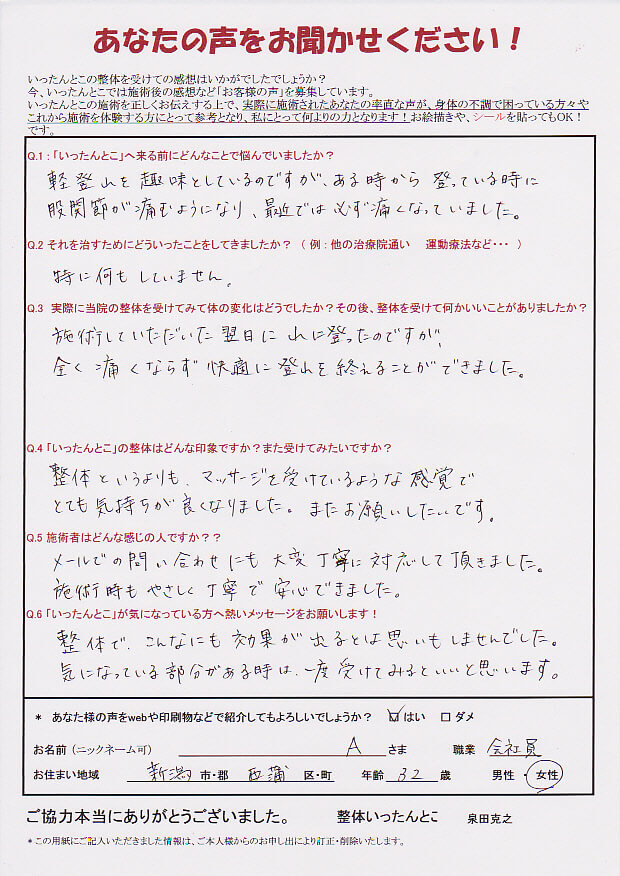 あなたの声をお聞かせください！
いったんとこの整体を受けての感想はいかがでしたでしょうか？
今、いったんとこでは施術後の感想など「お客様の声」を募集しています。
いったんとこの施術を正しくお伝えする上で、実際に施術されたあなたの率直な声が、身体の不調で困っている方々や
これから施術を体験する方にとって参考となり、私にとって何よりの力となります！お絵描きや、シールを貼ってもOK！
です。
Q.1：「いったんとこ」へ来る前にどんなことで悩んでいましたか？
軽登山を趣味としているのですが、ある時から 登っている時に
股関節が痛むようになり、最近では必ず痛くなっていました。
Q.2 それを治すためにどういったことをしてきましたか？ （ 例：他の治療院通い 運動療法など・・・ ）
特に何もしていません。
Q.3 実際に当院の整体を受けてみて体の変化はどうでしたか？その後、整体を受けて何かいいことがありましたか？
施術していただいた翌日に山に登ったのですが、
全く痛くならず快適に登山を終えることができました。
Q.4 「いったんとこ」の整体はどんな印象ですか？また受けてみたいですか？
整体というよりも、マッサージを受けているような感覚で
とても気持ちが良くなりました。またお願いしたいです。
Q.5 施術者はどんな感じの人ですか？？
メールでの問い合わせにも大変丁寧に対応して頂きました。
施術時もやさしく丁寧で安心できました。
Q.6 「いったんとこ」が気になっている方へ熱いメッセージをお願いします！
整体で、こんなにも効果が出るとは思いもしませんでした。
気になっている部分がある時は、一度受けてみるといいと思います。
* あなた様の声をwebや印刷物などで紹介してもよろしいでしょうか？ ☑はい □ダメ
お名前（ニックネーム可） A さま 職業 会社員
お住まい地域 新潟 市・郡 西蒲 区・町 年齢 32 歳 男性 ・ 女性
ご協力本当にありがとうございました。 整体いったんとこ 泉田克之
* この用紙にご記入いただきました情報は、ご本人様からのお申し出により訂正・削除いたします。